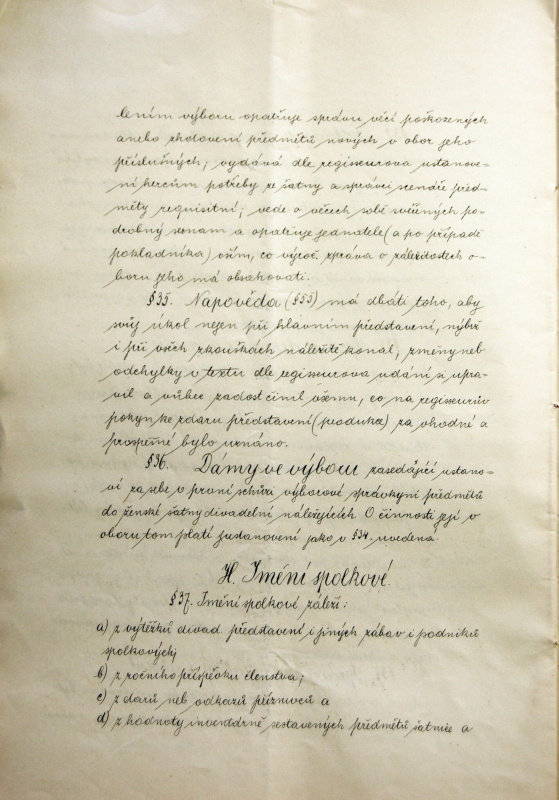 lením výboru opatřuje správu věcí poškozených
anebo zhotovení předmětů nových v obor jeho
příslušných; vydává dle regisseurova ustanove-
ní hercům potřeby ze šatny a správci scenérie před-
měty requisitní; vede o věcech sobě svěřených po-
drobný seznam a opatřuje jednatele (a po případě
pokladníka) vším, co výroč. zpráva o záležitostech o-
boru jeho má obsahovati.
§ 35. Napověda (§ 55) má dbáti toho, aby
svůj úkol nejen při hlavním představení, nýbrž
i při všech zkouškách náležitě konal, změny neb
odchylky v textu dle regisseurova udání si upra-
vil a vůbec zadost činil všemu, co na regisseurův
pokyn ke zdaru představení (produkce) za vhodné a
prospěšné bylo uznáno.
§ 36. Dámy ve výboru zasedající ustano-
ví za sebe v první schůzi výborové správkyni předmětů
do ženské šatny divadelní náležejících. O činnosti její v
oboru tom platí zustanovení jako v § 34. uvedena.
H. Jmění spolkové.
§ 37. Jmění spolkové záleží:
a) z výtěžků divad. představení i jiných zábav i podniků
spolkových;
b) z ročního příspěvku členstva;
c) z darů neb odkazů příznivců a
d) z hodnoty inventárně sestavených předmětů šatnice a